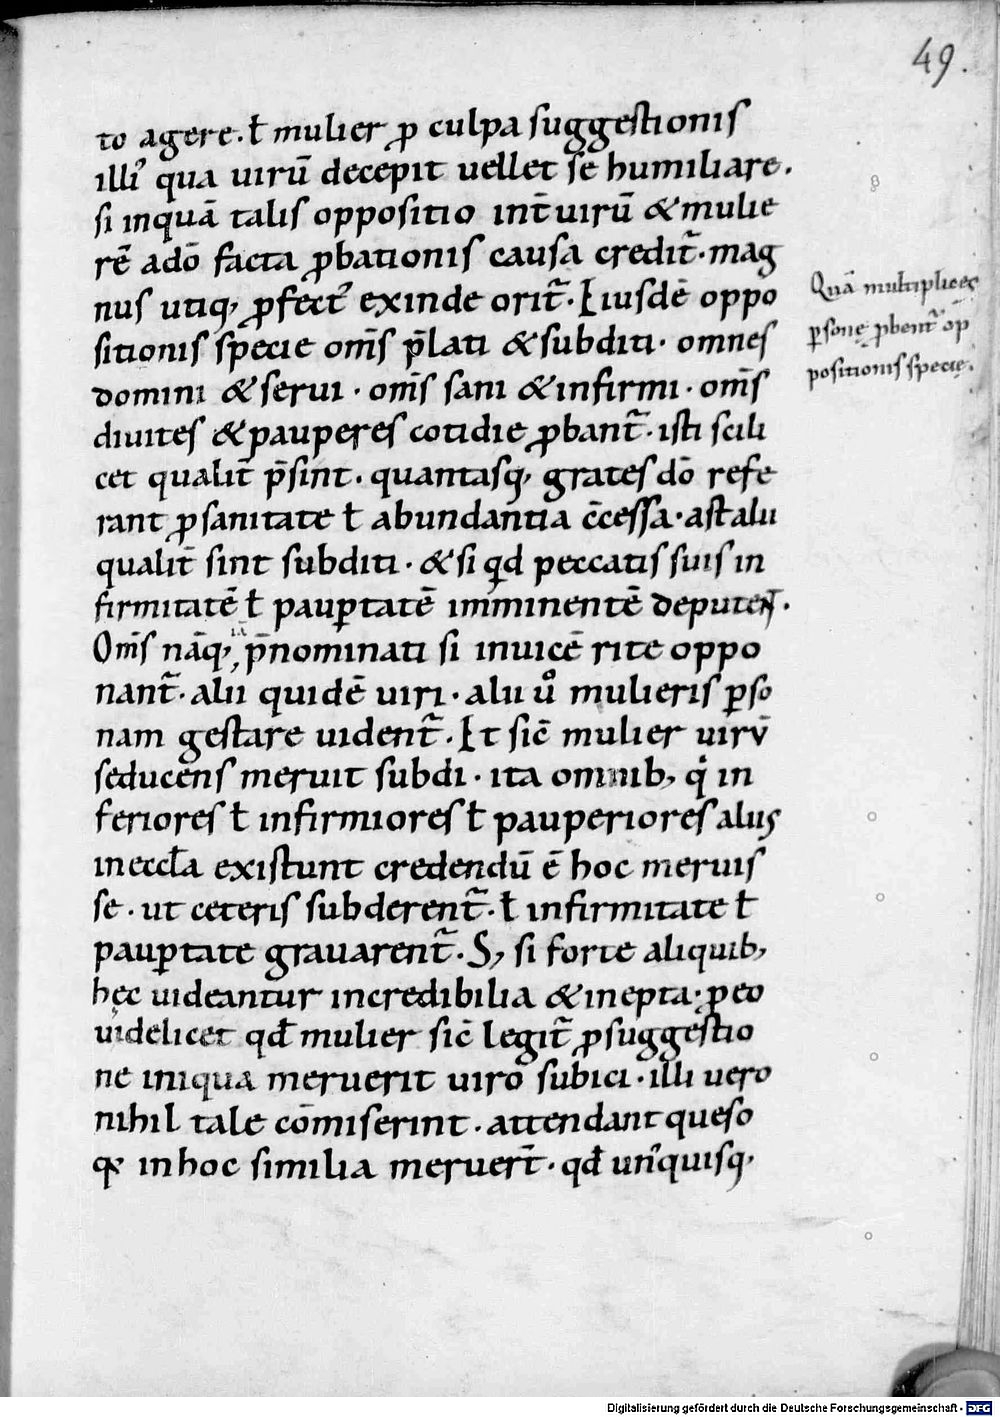 49.
to agere. ł mulier ꝓ culpa suggestionis
illiꝰ qua uirū decepit uellet se humiliare.
si inquā talis oppositio int̄ uirū & mulie
rē a dō facta ꝓbationis causa credit᷑. mag
nus utiq; ꝓfectꝰ exinde orit᷑. Eiusdē oppo
sitionis specie om̄s p̄lati & subditi. omnes
domini & serui. om̄s sani & infirmi. om̄s
diuites & pauperes cotidie ꝓbant᷑. isti scili
cet qualit̄ p̄sint. quantasq; grates dō refe
rant ꝓ sanitate ł abundantia c̄cessa. ast alii
qualit̄ sint subditi. & si qd peccatis suis in
firmitatē ł pauꝑtatē imminentē deputent.
Om̄s nāq; p̄nominati si inuicē rite oppo
nant᷑. alii quidē uiri. alii uͦ mulieris ꝑso
nam gestare uident᷑. Et sic̄ mulier uirū
seducens meruit subdi. ita omnib; qͥ in
feriores ł infirmiores ł pauperiores aliis
in eccłа existunt credendū ē hoc meruis
se. ut ceteris subderent᷑. ł infirmitate ł
pauꝑtate grauarent᷑. S; si forte aliquib;
hęc uideantur incredibilia & inepta. ꝓ eo
uidelicet qđ mulier sic̄ legit᷑ ꝓ suggestio
ne iniqua meruerit uiro subici. illi uero
nihil tale cōmiserint. attendant queso
qꝫ in hoc similia meruer̄t. qđ unꝰquisq;
Quā multiplices
ꝑsonę ꝓbent᷑ op
positionis specię.
Digitalisierung gefördert durch die Deutsche Forschungsgemeinschaft - DFG